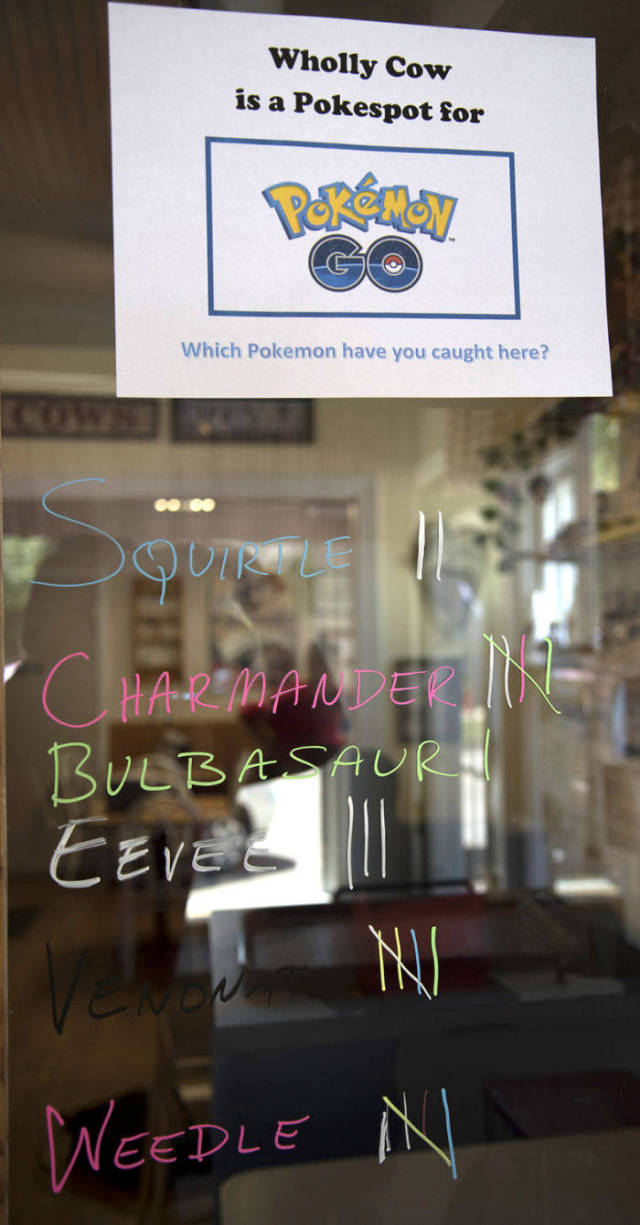 Wholly Cow
is a Pokespot for
POKéMON
GO
Which Pokemon have you caught here?
COWS
SQUIRTLE
CHARMANDER
BULBASAUR
EEVEE
VENONAT
WEEDLE